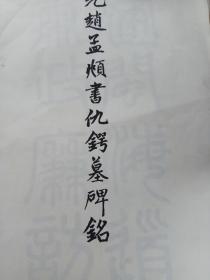 元趙孟頫書仇鍔墓碑銘